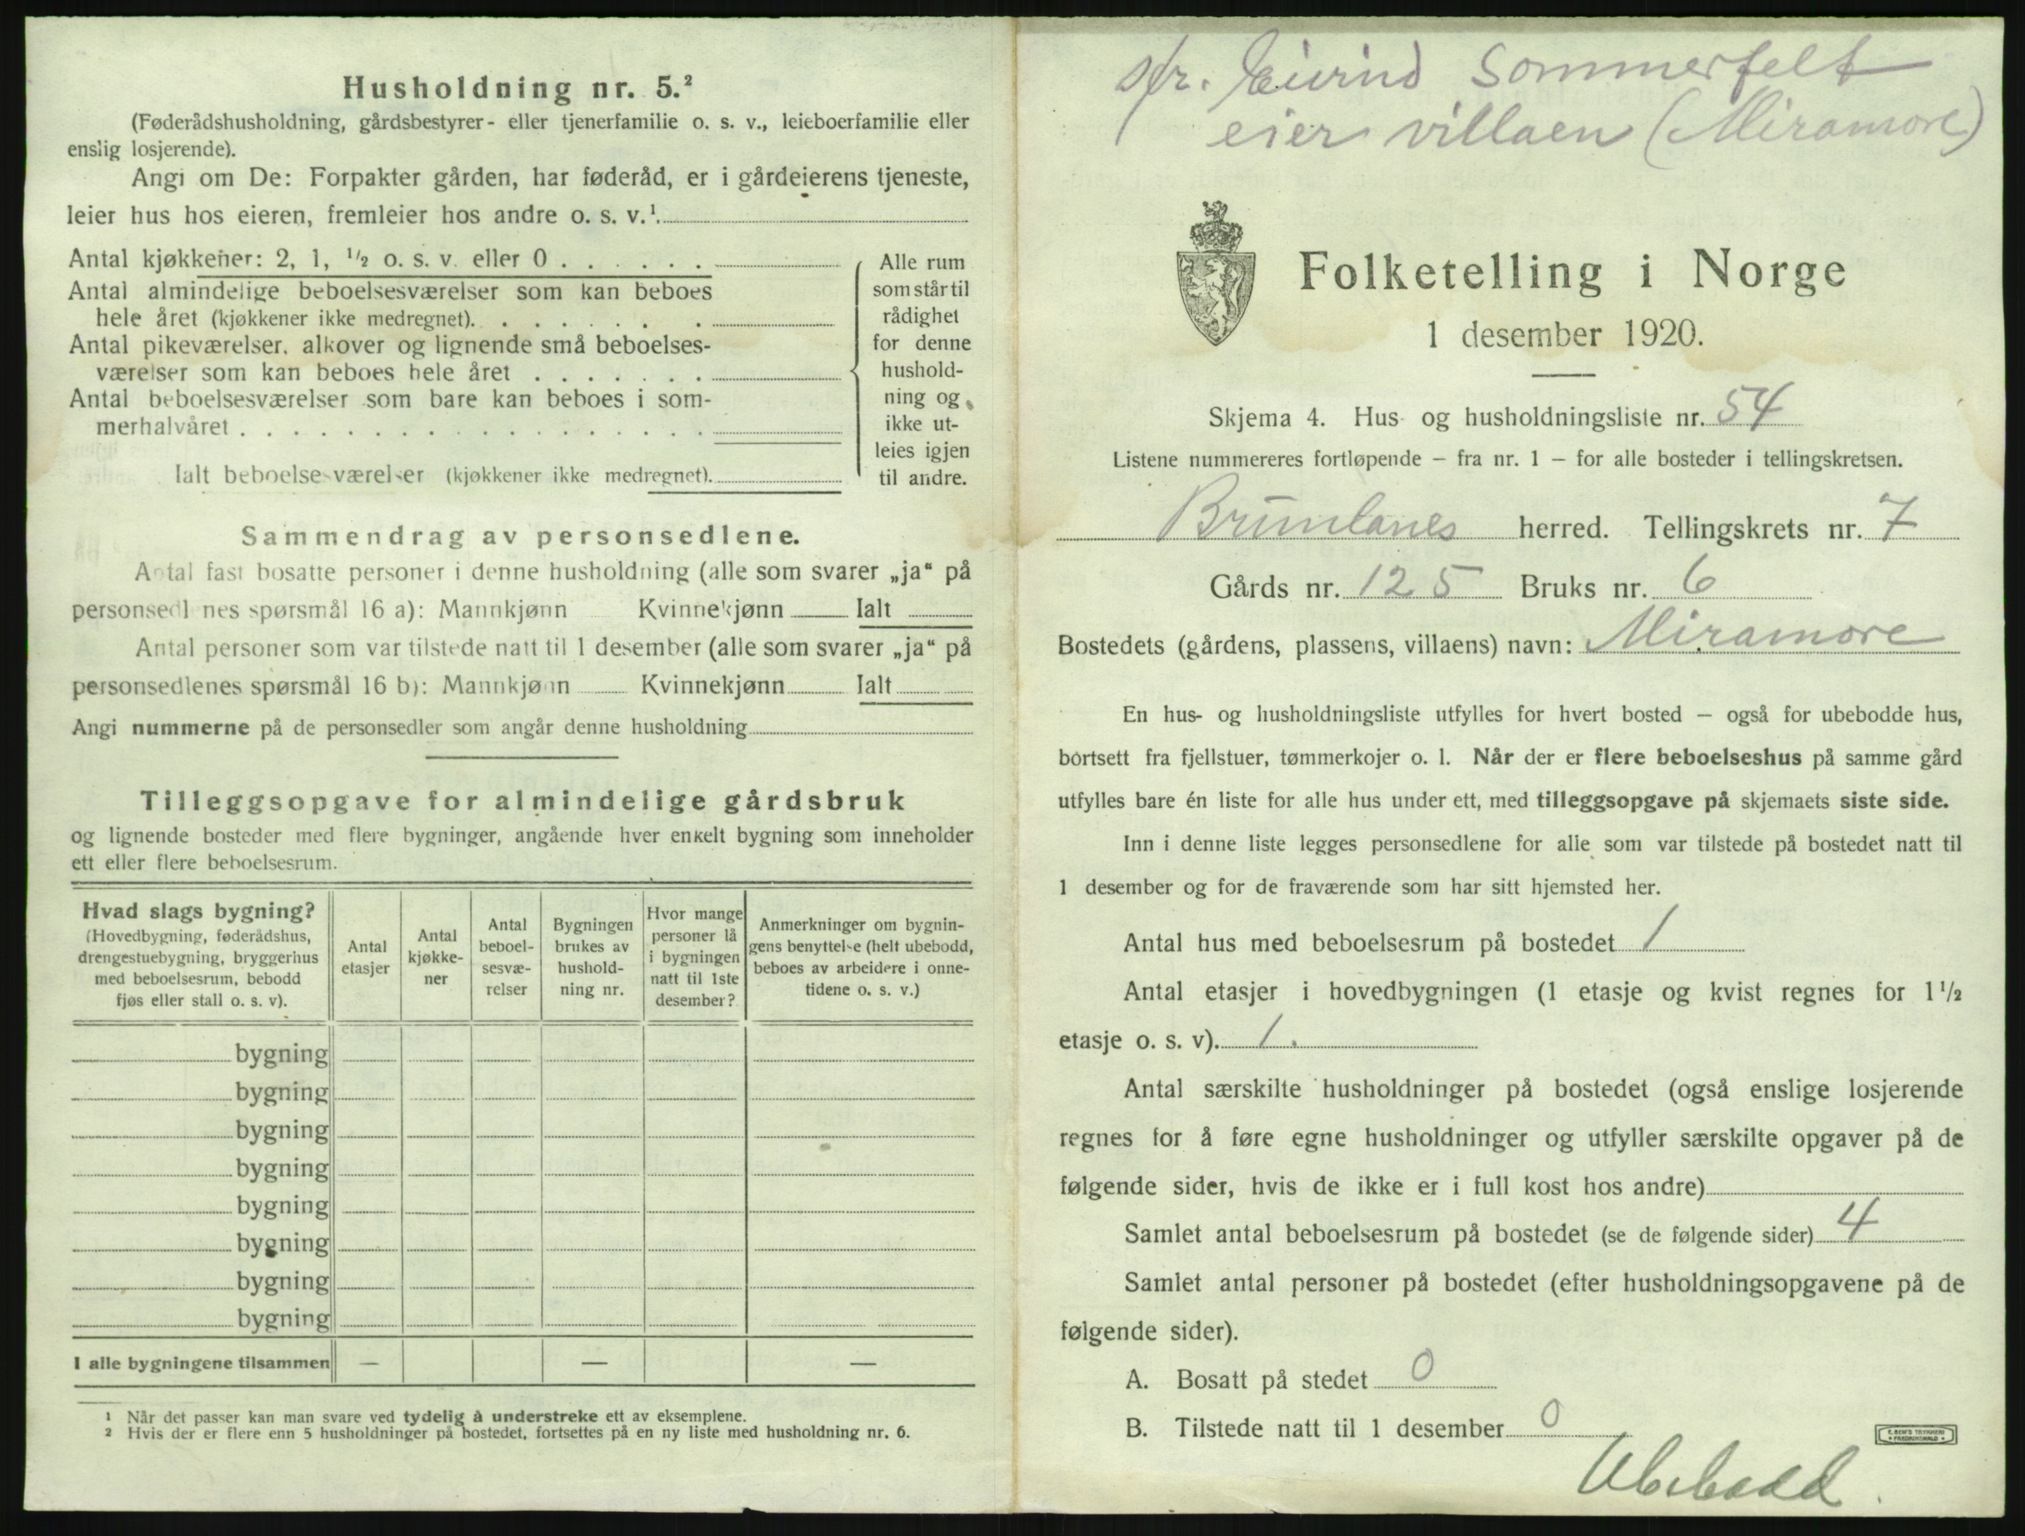 Husholdning nr. 5.²
(Føderådshusholdning, gårdsbestyrer- eller tjenerfamilie o. s. v., leieboerfamilie eller
enslig losjerende).
Angi om De: Forpakter gården, har føderåd, er i gårdeierens tjeneste,
leier hus hos eieren, fremleier hos andre o. s. v.¹.
Antal kjøkkener: 2, 1, ¹/₂ o. s. v. eller 0 . . . . . .
Antal almindelige beboelsesværelser som kan beboes
hele året (kjøkkener ikke medregnet). . . . . . .
Antal pikeværelser, alkover og lignende små beboelses-
værelser som kan beboes hele året . . . . . . .
Antal beboelsesværelser som bare kan beboes i som-
merhalvåret . . . . . . . . . . . . . . . . . .
Ialt beboelsesværelser (kjøkkener ikke medregnet).
Alle rum
som står til
rådighet
for denne
hushold-
ning og
ikke ut-
leies igjen
til andre.
Sammendrag av personsedlene.
Antal fast bosatte personer i denne husholdning (alle som svarer „ja“ på
personsedlenes spørsmål 16 a): Mannkjønn Kvinnekjønn Ialt
Antal personer som var tilstede natt til 1 desember (alle som svarer „ja“ på
personsedlenes spørsmål 16 b): Mannkjønn Kvinnekjønn Ialt
Angi nummerne på de personsedler som angår denne husholdning
Tilleggsopgave for almindelige gårdsbruk
og lignende bosteder med flere bygninger, angående hver enkelt bygning som inneholder
ett eller flere beboelsesrum.
Hvad slags bygning?
(Hovedbygning, føderådshus,
drengestuebygning, bryggerhus
med beboelsesrum, bebodd
fjøs eller stall o. s. v).
Antal
etasjer
Antal
kjøkke-
ner
Antal
beboel-
sesvæ-
relser
Bygningen
brukes av
hushold-
ning nr.
Hvor mange
personer lå
i bygningen
natt til 1ste
desember?
Anmerkninger om bygnin-
gens benyttelse (helt ubebodd,
beboes av arbeidere i onne-
tidene o. s. v.)
bygning
bygning
bygning
bygning
bygning
bygning
bygning
bygning
I alle bygningene tilsammen — — —
¹ Når det passer kan man svare ved tydelig å understreke ett av eksemplene.
² Hvis der er flere enn 5 husholdninger på bostedet, fortsettes på en ny liste med husholdning nr. 6.
Eivind Sommerfelt
eier villaen (Miramore)
Folketelling i Norge
1 desember 1920.
Skjema 4. Hus- og husholdningsliste nr. 54
Listene nummereres fortløpende – fra nr. 1 – for alle bosteder i tellingskretsen.
Brunlanes herred. Tellingskrets nr. 7
Gårds nr. 125 Bruks nr. 6
Bostedets (gårdens, plassens, villaens) navn: Miramore
En hus- og husholdningsliste utfylles for hvert bosted – også for ubebodde hus,
bortsett fra fjellstuer, tømmerkojer o. l. Når der er flere beboelseshus på samme gård
utfylles bare én liste for alle hus under ett, med tilleggsopgave på skjemaets siste side.
Inn i denne liste legges personsedlene for alle som var tilstede på bostedet natt til
1 desember og for de fraværende som har sitt hjemsted her.
Antal hus med beboelsesrum på bostedet 1
Antal etasjer i hovedbygningen (1 etasje og kvist regnes for 1¹/₂
etasje o. s. v). 1.
Antal særskilte husholdninger på bostedet (også enslige losjerende
regnes for å føre egne husholdninger og utfyller særskilte opgaver på de
følgende sider, hvis de ikke er i full kost hos andre)
Samlet antal beboelsesrum på bostedet (se de følgende sider) 4
Samlet antal personer på bostedet (efter husholdningsopgavene på de
følgende sider).
A. Bosatt på stedet 0
B. Tilstede natt til 1 desember 0
Ubebodd.